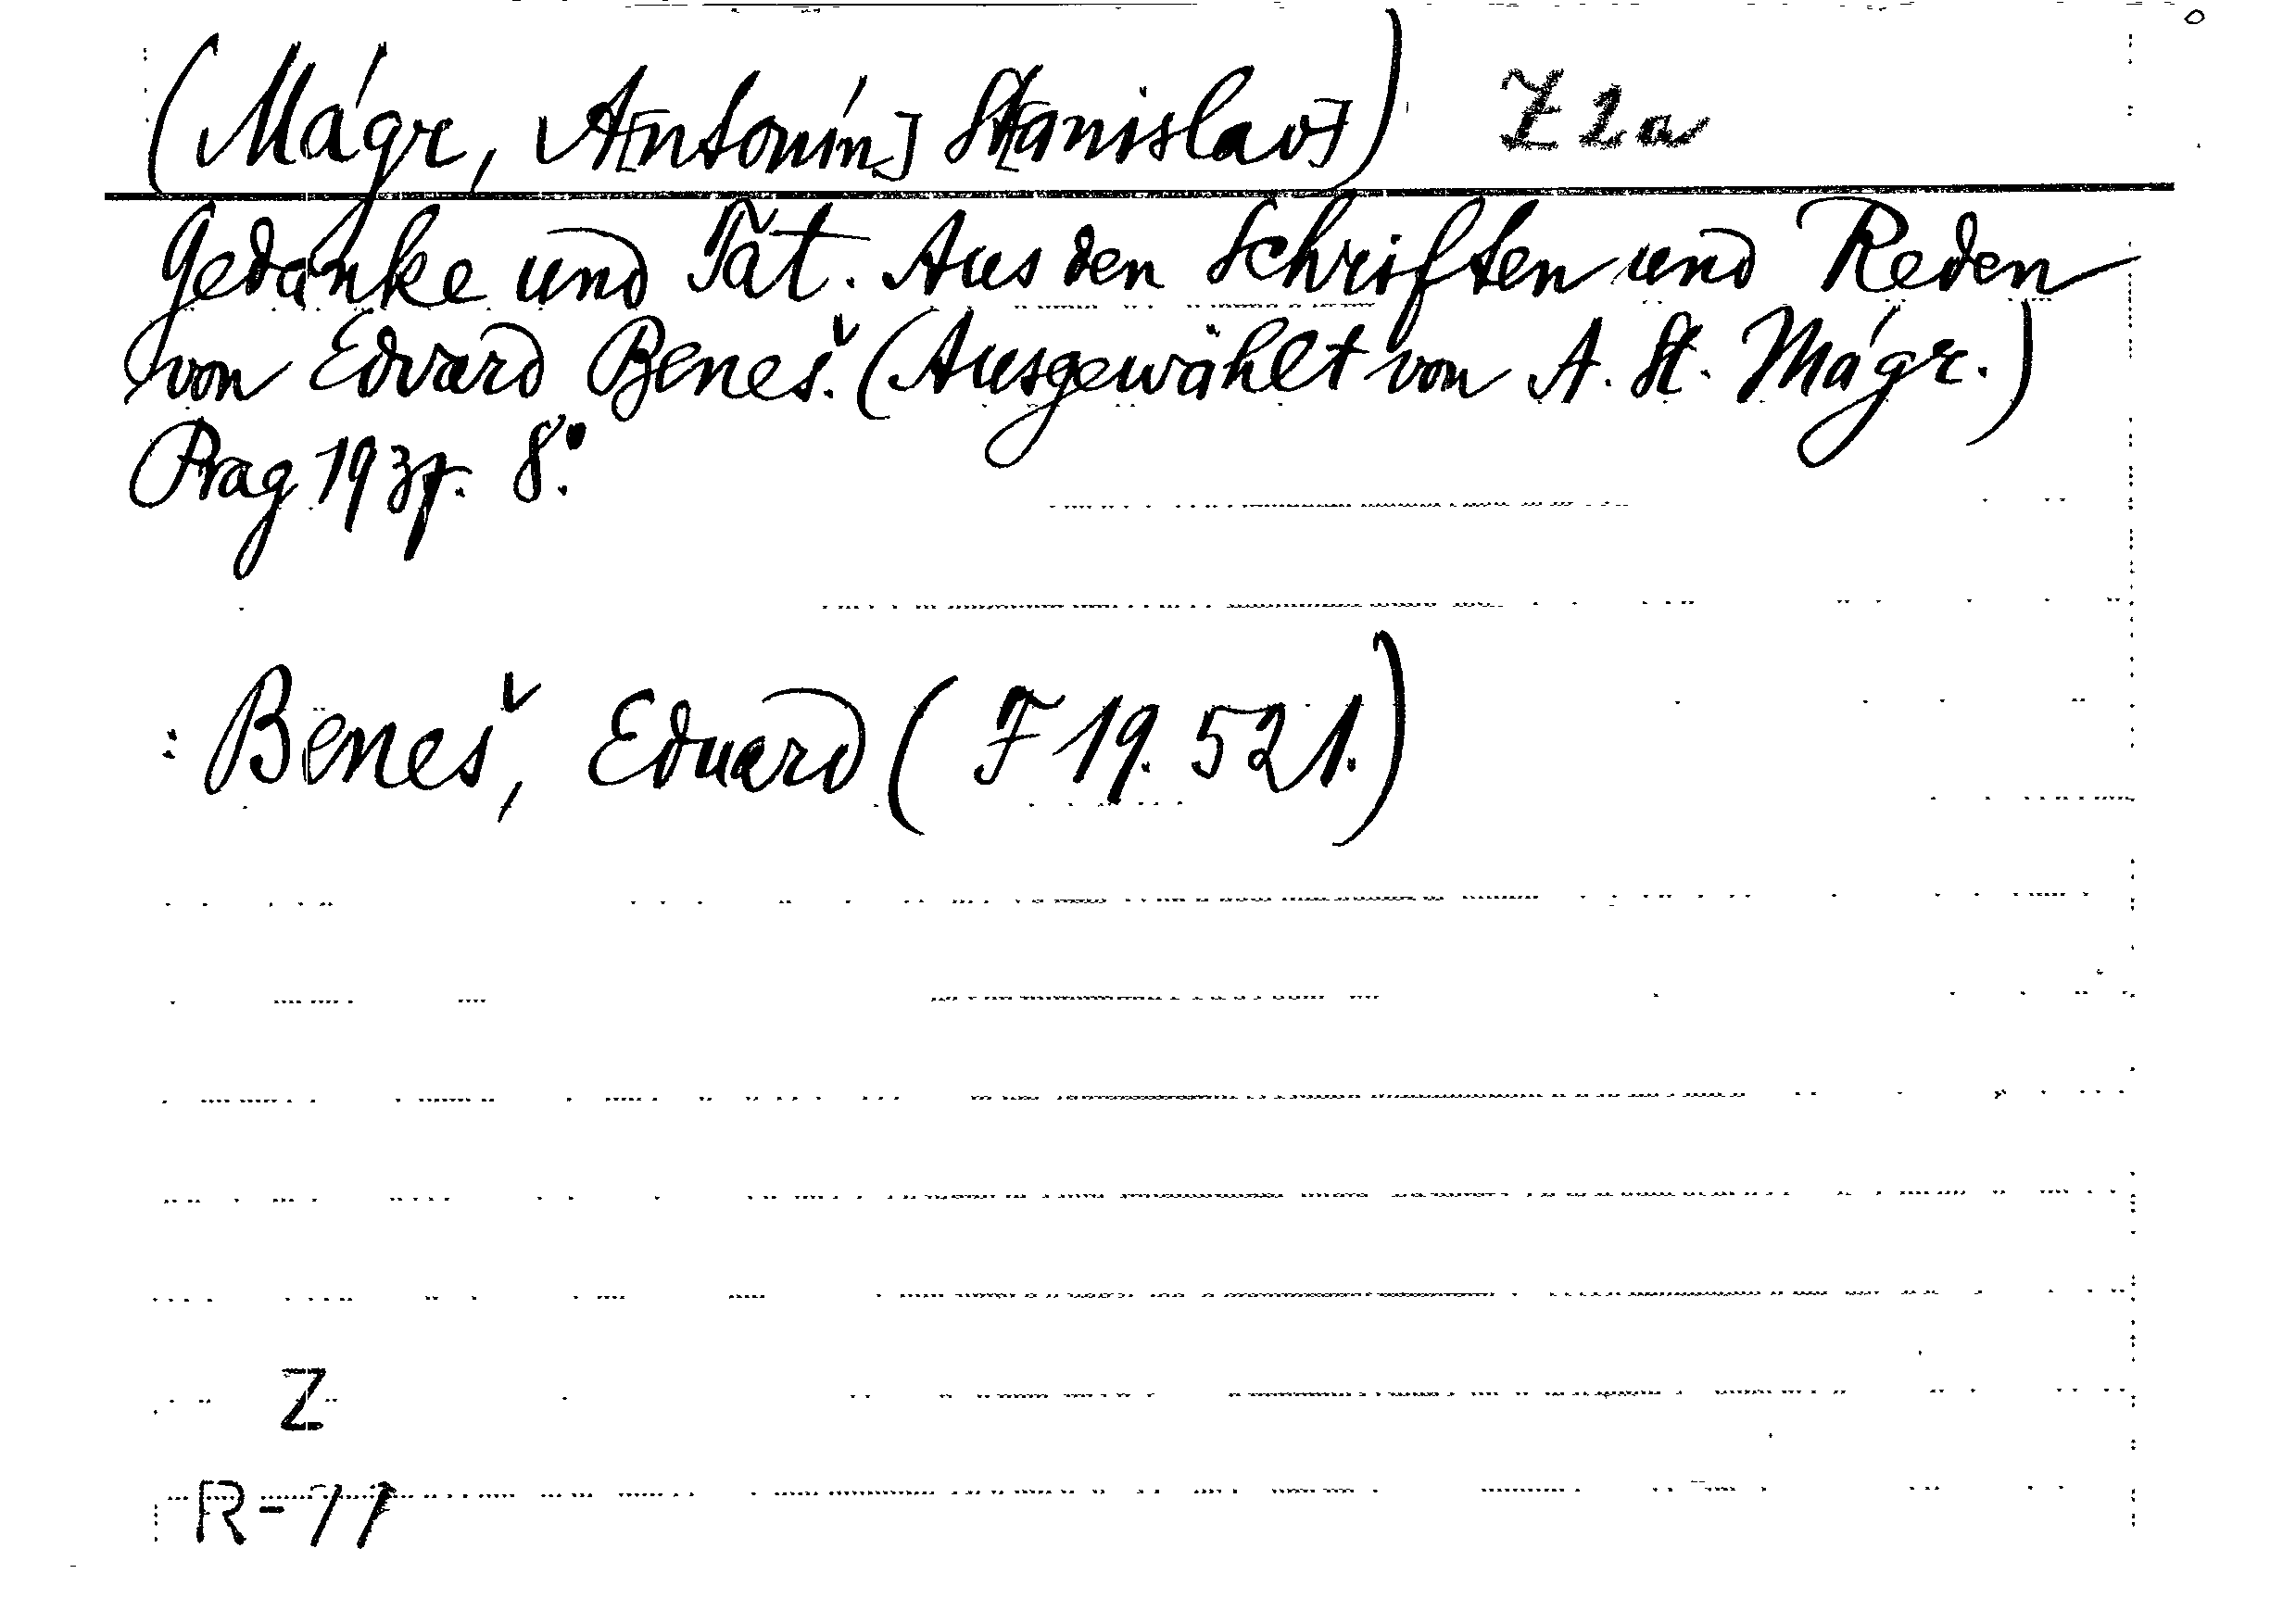 (Mágr, A[ntonín] St[anislav]) Z 2a
Gedanke und Tat. Aus den Schriften und Reden
von Edvard Beneš. (Ausgewählt von A. St. Mágr.)
Prag 1937. 8°.
: Beneš, Eduard (F 19.521.)
Z
R-77